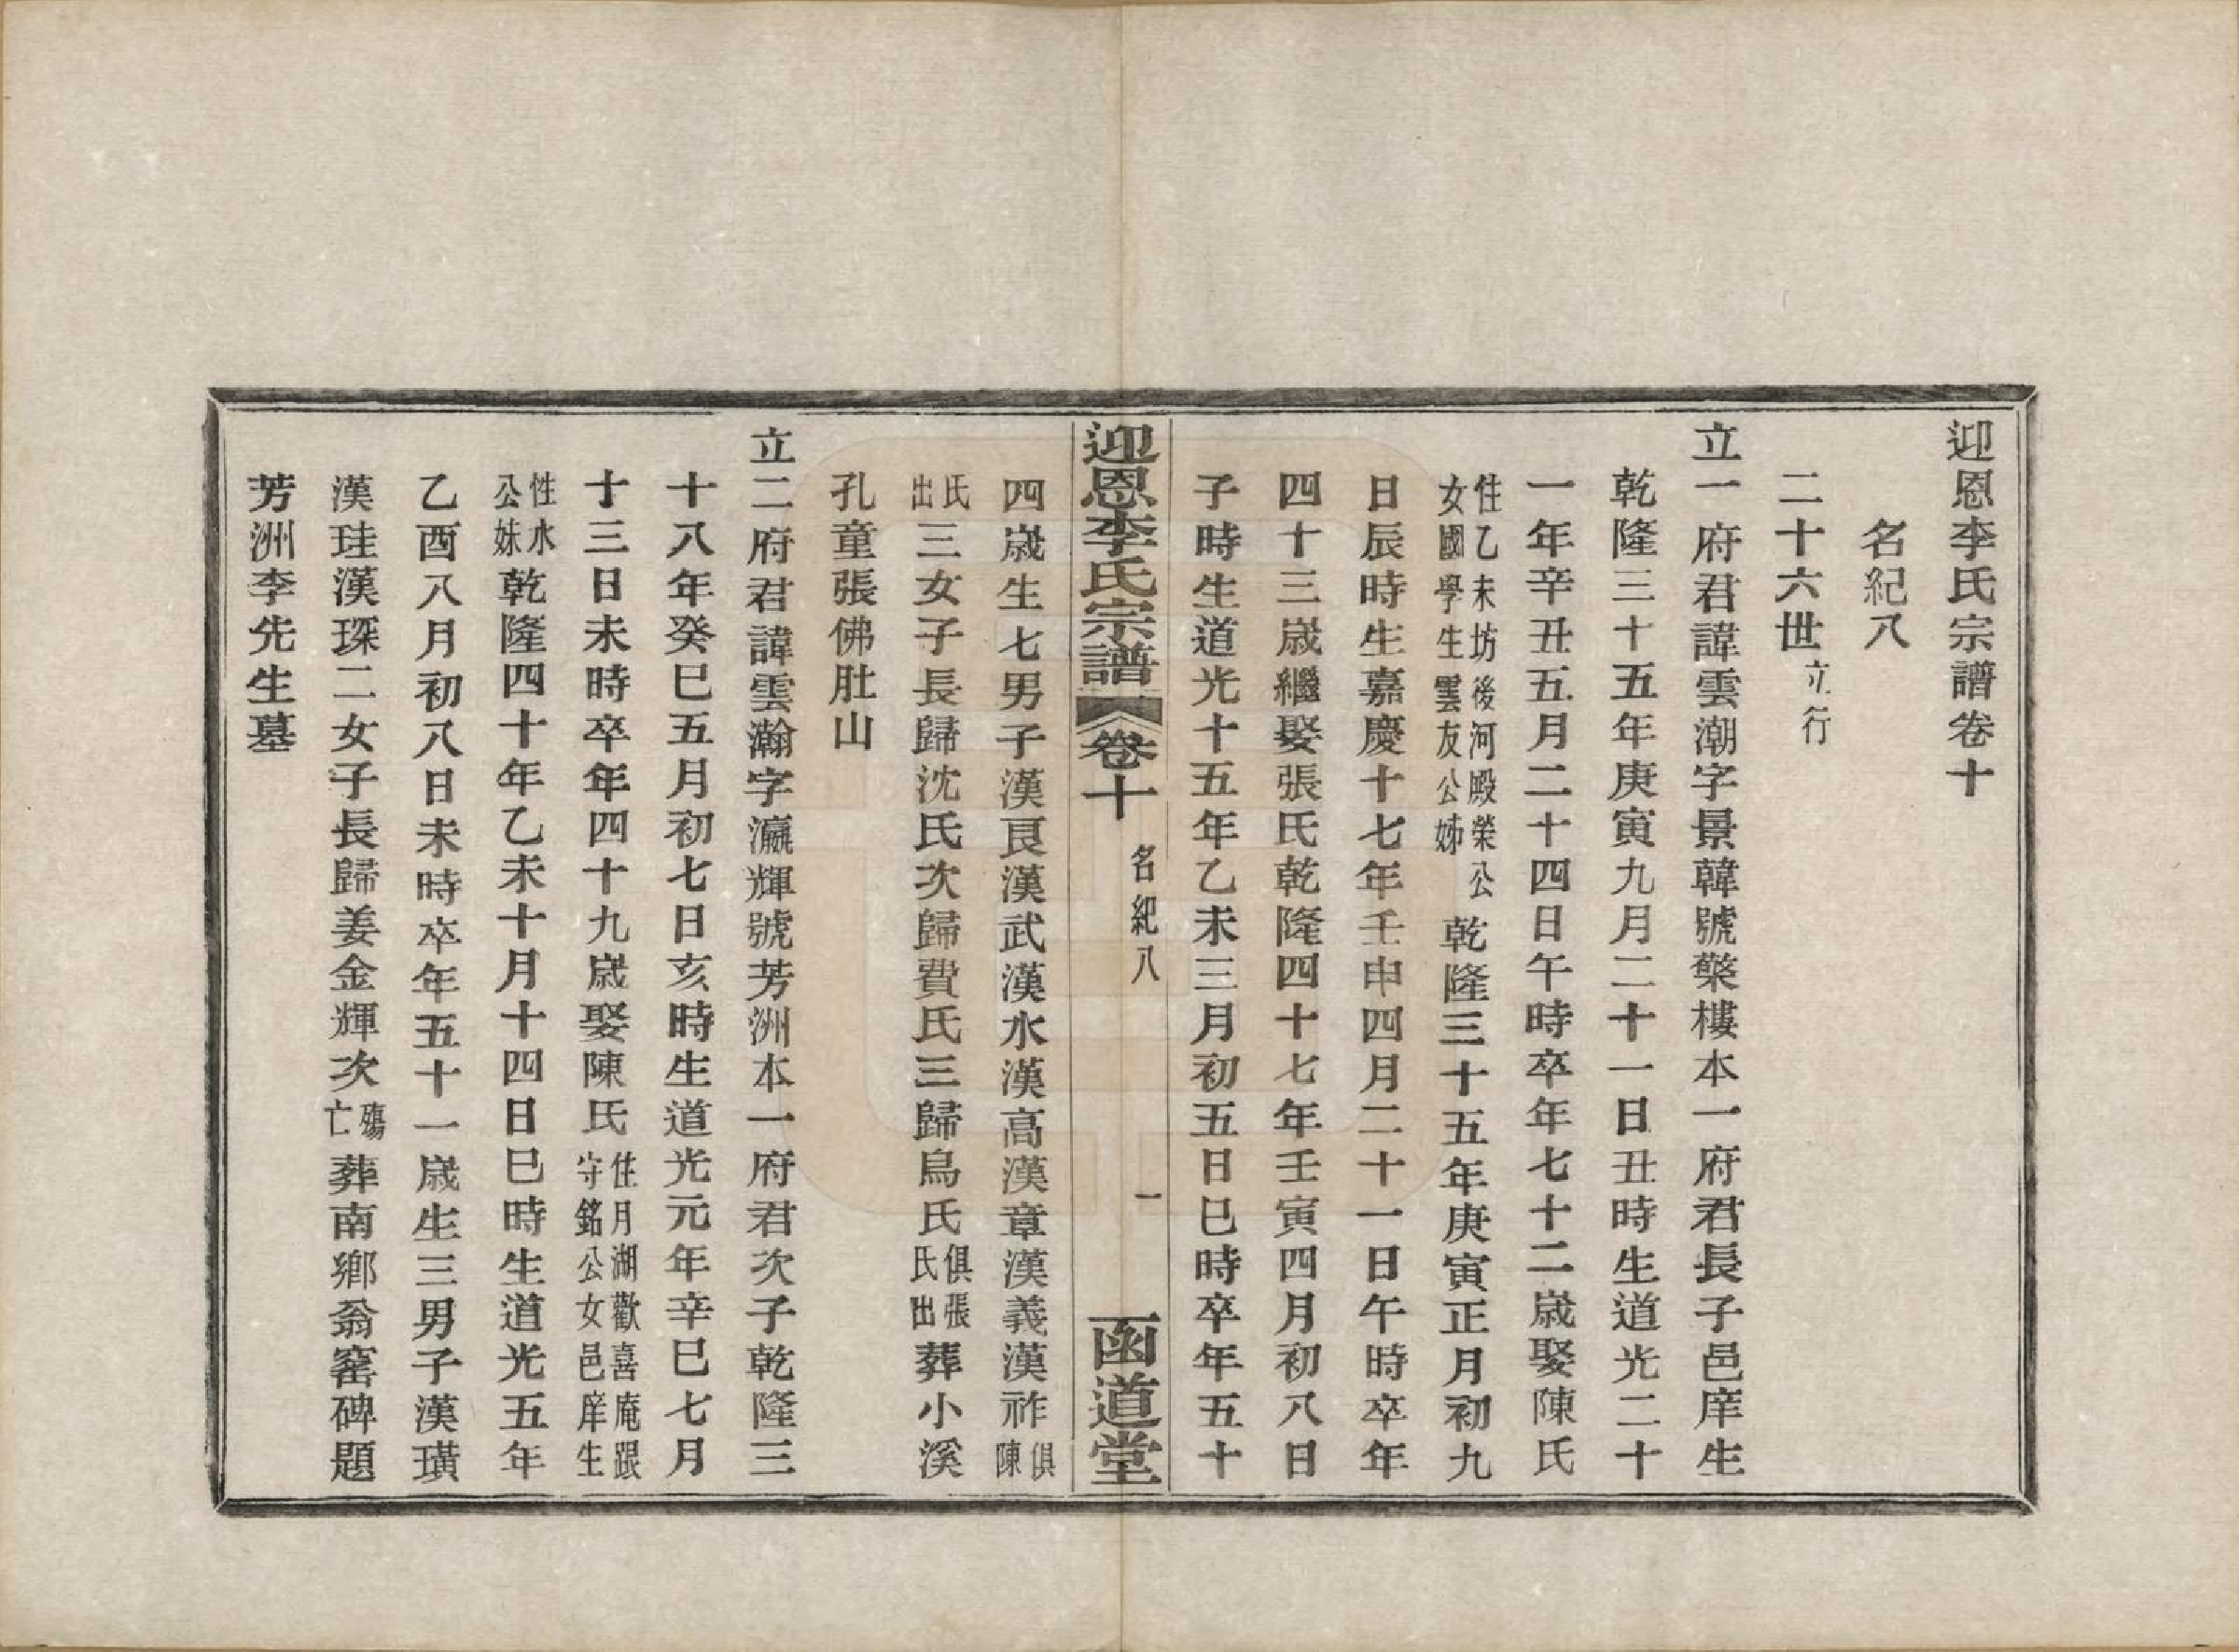 迎恩李氏宗譜卷十
名紀八
二十六世立行
立一府君諱雲潮字景韓號檠樓本一府君長子邑庠生
乾隆三十五年庚寅九月二十一日丑時生道光二十
一年辛丑五月二十四日午時卒年七十二歲娶陳氏
住乙未坊後河殿榮公
女國學生雲友公姊
乾隆三十五年庚寅正月初九
日辰時生嘉慶十七年壬申四月二十一日午時卒年
四十三歲繼娶張氏乾隆四十七年壬寅四月初八日
子時生道光十五年乙未三月初五日巳時卒年五十
迎恩李氏宗譜 卷十 名紀八 一 函道堂
四歲生七男子漢艮漢武漢水漢高漢章漢義漢祚俱陳
氏出三女子長歸沈氏次歸費氏三歸烏氏俱張氏出葬小溪
孔童張佛肚山
立二府君諱雲瀚字瀛輝號芳洲本一府君次子乾隆三
十八年癸巳五月初七日亥時生道光元年辛巳七月
十三日未時卒年四十九歲娶陳氏住月湖歡喜庵跟
守銘公女邑庠生
性水
公妹乾隆四十年乙未十月十四日巳時生道光五年
乙酉八月初八日未時卒年五十一歲生三男子漢璜
漢珪漢琛二女子長歸姜金輝次殤亡葬南鄉翁窰碑題
芳洲李先生墓